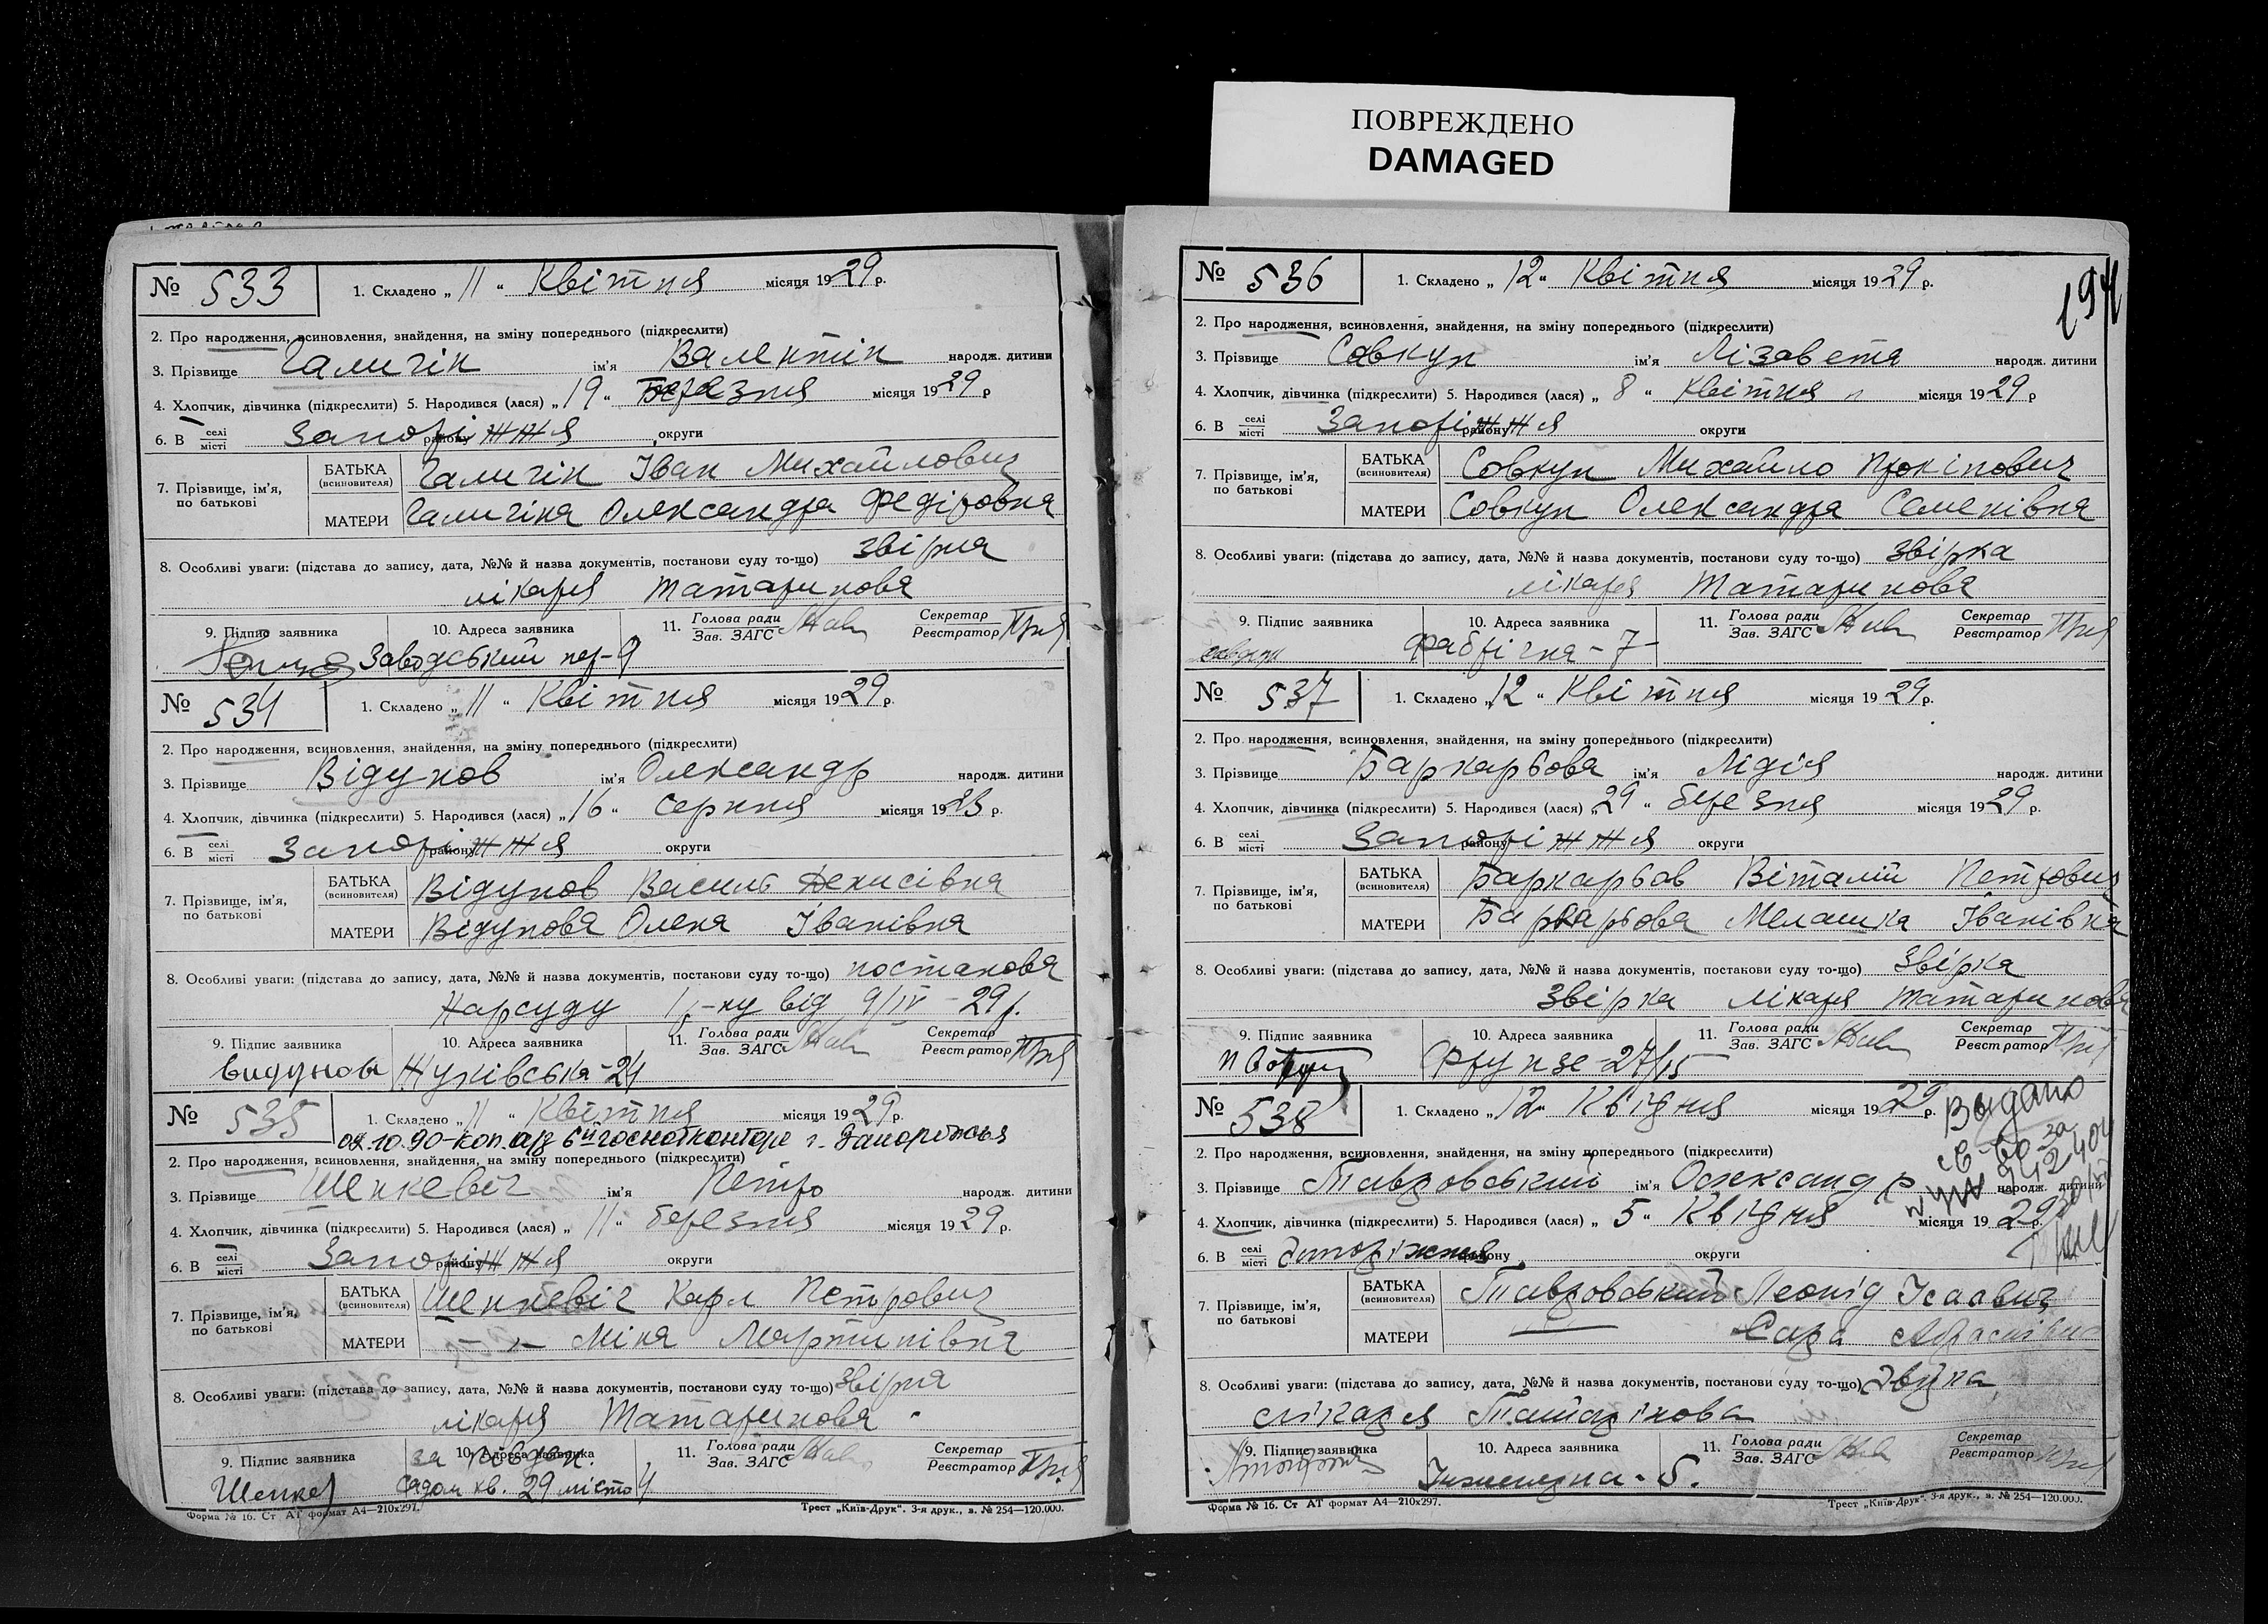 ПОВРЕЖДЕНО
DAMAGED
№ 533
1. Складено „11" Квітня місяця 1929 р.
2. Про народження, всиновлення, знайдення, на зміну попереднього (підкреслити)
3. Прізвище Галичін ім'я Валентін народж. дитини
4. Хлопчик, дівчинка (підкреслити) 5. Народився (лася) „19" Березня місяця 1929 р
6. В селі місті Запоріжжя району округи
7. Прізвище, ім'я, по батькові
БАТЬКА (всиновителя) Галичін Іван Михайлович
МАТЕРИ Галичіна Олександра Федіровна
8. Особливі уваги: (підстава до запису, дата, №№ й назва документів, постанови суду то-що) звірка
лікаря Татаринова
9. Підпис заявника 10. Адреса заявника 11. Голова ради Зав. ЗАГС Секретар Реєстратор
Заводський пер-9
№ 534
1. Складено „11" Квітня місяця 1929 р.
2. Про народження, всиновлення, знайдення, на зміну попереднього (підкреслити)
3. Прізвище Відунов ім'я Олександр народж. дитини
4. Хлопчик, дівчинка (підкреслити) 5. Народився (лася) „16" серпня місяця 19 р.
6. В селі місті Запоріжжя району округи
7. Прізвище, ім'я, по батькові
БАТЬКА (всиновителя) Відунов Василь Денисівна
МАТЕРИ Відунова Олена Іванівна
8. Особливі уваги: (підстава до запису, дата, №№ й назва документів, постанови суду то-що) постанова
Нарсуду 1 р-ну від 9/IV-29 р.
9. Підпис заявника 10. Адреса заявника 11. Голова ради Зав. ЗАГС Секретар Реєстратор
Видунова Жуківська-24
№ 535
1. Складено „11" Квітня місяця 1929 р.
02.10.90-коп. а/з 6й госнотконторе г. Запорожья
2. Про народження, всиновлення, знайдення, на зміну попереднього (підкреслити)
3. Прізвище Шенкевіч ім'я Петро народж. дитини
4. Хлопчик, дівчинка (підкреслити) 5. Народився (лася) „11" березня місяця 1929 р.
6. В селі місті Запоріжжя району округи
7. Прізвище, ім'я, по батькові
БАТЬКА (всиновителя) Шенкевіч Карл Петрович
МАТЕРИ Міна Мартинівна
8. Особливі уваги: (підстава до запису, дата, №№ й назва документів, постанови суду то-що) звірка
лікаря Татаринова
9. Підпис заявника 10. Адреса заявника 11. Голова ради Зав. ЗАГС Секретар Реєстратор
Шенкев садом кв. 29 місто 4
Форма № 16. Ст АТ формат А4—210x297. Трест „Київ-Друк". 3-я друк., з. № 254—120.000.
№ 536
1. Складено „12" Квітня місяця 1929 р.
2. Про народження, всиновлення, знайдення, на зміну попереднього (підкреслити)
3. Прізвище Совкун ім'я Лізавета народж. дитини
4. Хлопчик, дівчинка (підкреслити) 5. Народився (лася) „8" Квітня місяця 1929 р
6. В селі місті Запоріжжя району округи
7. Прізвище, ім'я, по батькові
БАТЬКА (всиновителя) Совкун Михайло Прокіпович
МАТЕРИ Совкун Олександра Семенівна
8. Особливі уваги: (підстава до запису, дата, №№ й назва документів, постанови суду то-що) Звірка
лікаря Татаринова
9. Підпис заявника 10. Адреса заявника 11. Голова ради Зав. ЗАГС Секретар Реєстратор
Фабрічна-7-
№ 537
1. Складено „12" Квітня місяця 1929 р.
2. Про народження, всиновлення, знайдення, на зміну попереднього (підкреслити)
3. Прізвище Баркарьова ім'я Лідія народж. дитини
4. Хлопчик, дівчинка (підкреслити) 5. Народився (лася) „29" березня місяця 1929 р.
6. В селі місті Запоріжжя району округи
7. Прізвище, ім'я, по батькові
БАТЬКА (всиновителя) Баркарьов Віталій Петрович
МАТЕРИ Баркарьова Мелашка Іванівна
8. Особливі уваги: (підстава до запису, дата, №№ й назва документів, постанови суду то-що) Звірка
Звірка лікаря Татаринова
9. Підпис заявника 10. Адреса заявника 11. Голова ради Зав. ЗАГС Секретар Реєстратор
Фрунзе-27/15
№ 538
1. Складено „12" Квітня місяця 1929 р.
Выдано
св-во за
2. Про народження, всиновлення, знайдення, на зміну попереднього (підкреслити)
3. Прізвище Тавровський ім'я Олександр народж. дитини
4. Хлопчик, дівчинка (підкреслити) 5. Народився (лася) „5" Квітня місяця 1929 р.
6. В селі місті Запоріжжя району округи
7. Прізвище, ім'я, по батькові
БАТЬКА (всиновителя) Тавровський Леонід Ісаович
МАТЕРИ Сара Абрамівна
8. Особливі уваги: (підстава до запису, дата, №№ й назва документів, постанови суду то-що) Звірка
лікаря Татарінова
9. Підпис заявника 10. Адреса заявника 11. Голова ради Зав. ЗАГС Секретар Реєстратор
Інженерна-5.
Форма № 16. Ст АТ формат А4—210x297. Трест „Київ-Друк". 3-я друк., з. № 254—120.000.